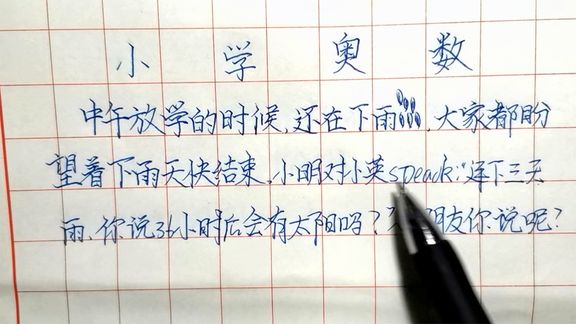 小学奥数
中午放学的时候,还在下雨,大家都盼
望着下雨天快结束,小明对小英speack:“连下三天
雨,你说36小时后会有太阳吗?朋友你说呢?